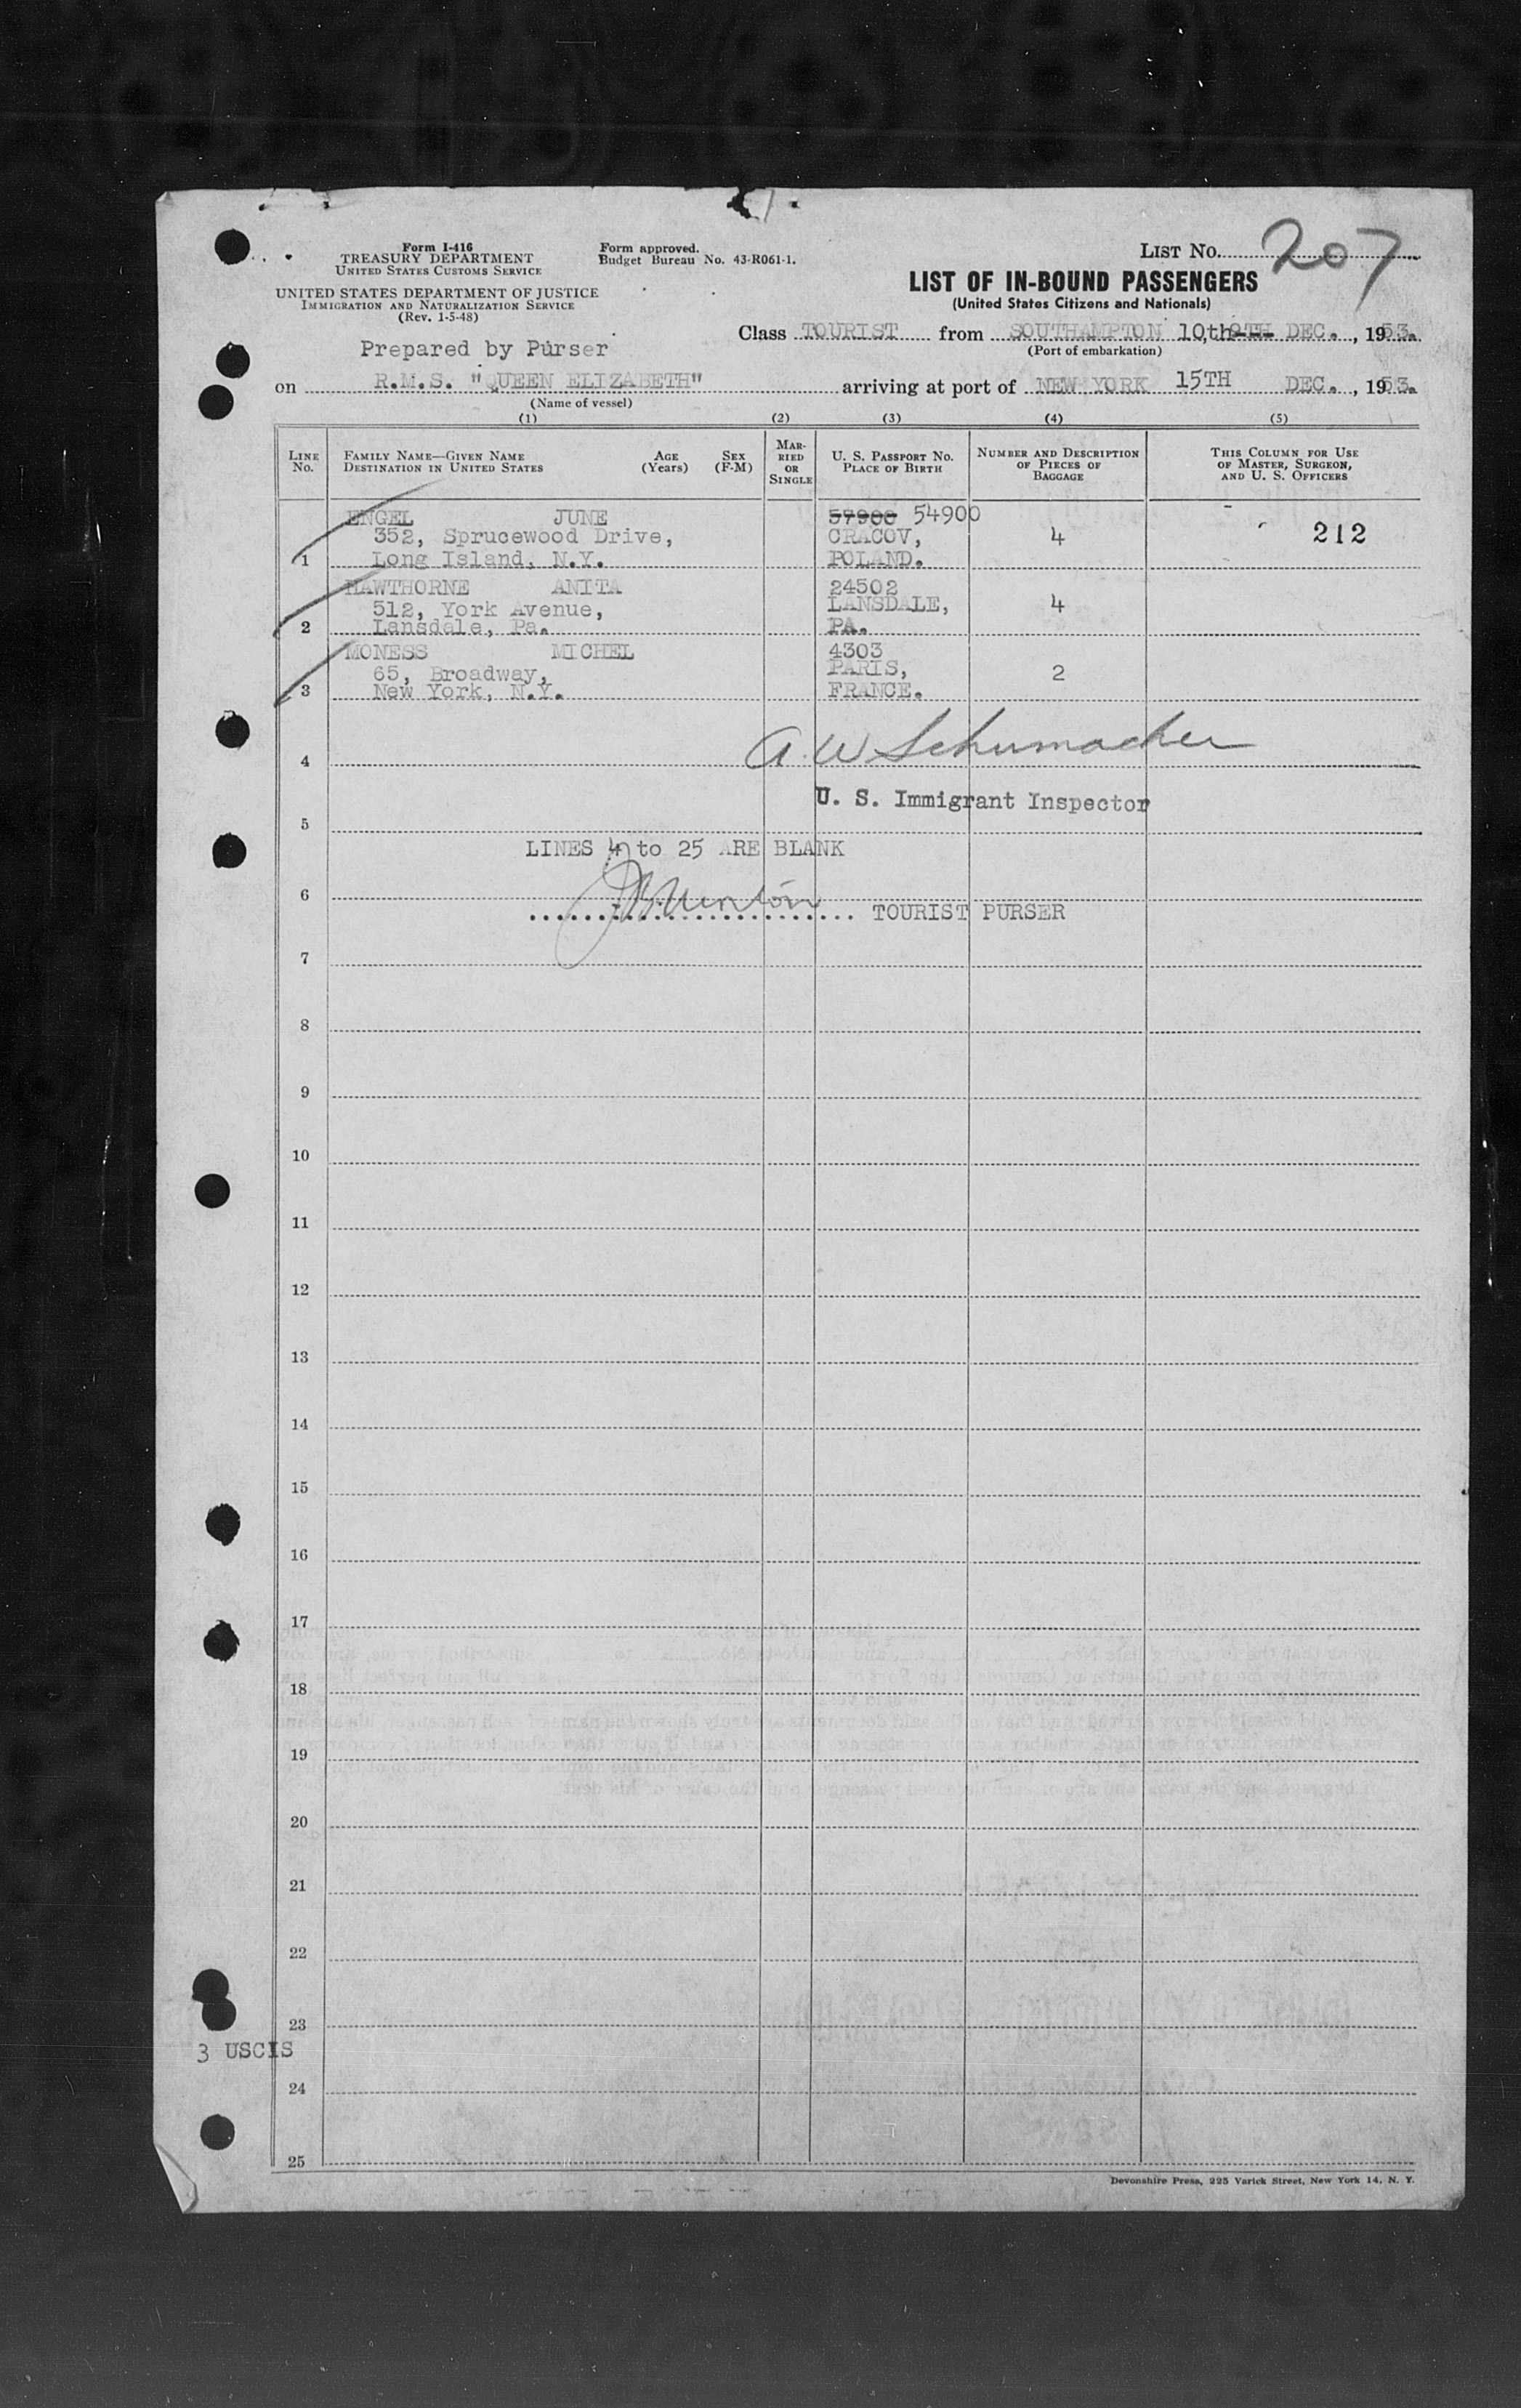 Form I-416
TREASURY DEPARTMENT
UNITED STATES CUSTOMS SERVICE
UNITED STATES DEPARTMENT OF JUSTICE
IMMIGRATION AND NATURALIZATION SERVICE
(Rev. 1-5-48)
Form approved.
Budget Bureau No. 43-R061-1.
LIST No. 207
LIST OF IN-BOUND PASSENGERS
(United States Citizens and Nationals)
Class TOURIST from SOUTHAMPTON 10th 9TH DEC., 1953.
(Port of embarkation)
Prepared by Purser
on R.M.S. "QUEEN ELIZABETH" arriving at port of NEW YORK 15TH DEC., 1953.
(Name of vessel)
(1) (2) (3) (4) (5)
LINE No. FAMILY NAME—GIVEN NAME DESTINATION IN UNITED STATES AGE (Years) SEX (F-M) MARRIED OR SINGLE U. S. PASSPORT No. PLACE OF BIRTH NUMBER AND DESCRIPTION OF PIECES OF BAGGAGE THIS COLUMN FOR USE OF MASTER, SURGEON, AND U. S. OFFICERS
ENGEL JUNE 57900 54900
352, Sprucewood Drive, CRACOV, 4 212
1 Long Island, N.Y. POLAND.
HAWTHORNE ANITA 24502
512, York Avenue, LANSDALE, 4
2 Lansdale, Pa. PA.
MONESS MICHEL 4303
65, Broadway, PARIS, 2
3 New York, N.Y. FRANCE.
A. W Schumacher
4
U. S. Immigrant Inspector
5
LINES 4 to 25 ARE BLANK
6
TOURIST PURSER
7
8
9
10
11
12
13
14
15
16
17
18
19
20
21
22
23
3 USCIS
24
25
Devonshire Press, 225 Varick Street, New York 14, N. Y.